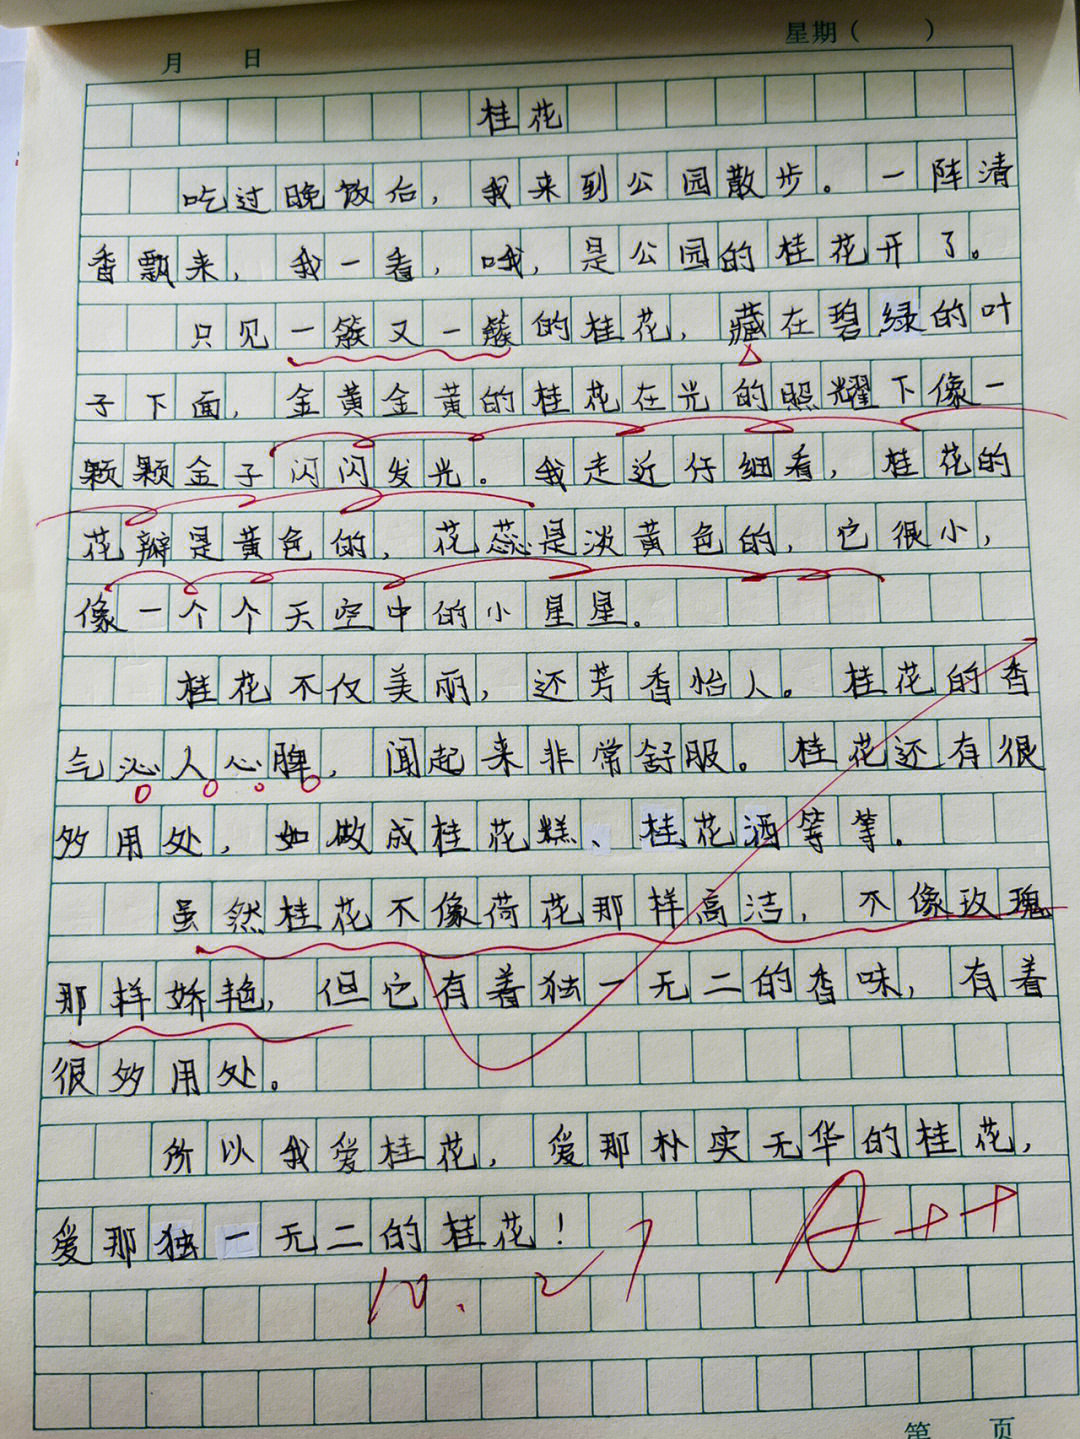 月 日 星期（ ）
桂花
吃过晚饭后，我来到公园散步。一阵清
香飘来，我一看，哦，是公园的桂花开了。
只见一簇又一簇的桂花，藏在碧绿的叶
子下面，金黄金黄的桂花在光的照耀下像一
颗颗金子闪闪发光。我走近仔细看，桂花的
花瓣是黄色的，花蕊是淡黄色的，它很小，
像一个个天空中的小星星。
桂花不仅美丽，还芳香怡人。桂花的香
气沁人心脾，闻起来非常舒服。桂花还有很
多用处，如做成桂花糕、桂花酒等等。
虽然桂花不像荷花那样高洁，不像玫瑰
那样娇艳，但它有着独一无二的香味，有着
很多用处。
所以我爱桂花，爱那朴实无华的桂花，
爱那独一无二的桂花！
A++
10.27
第 页